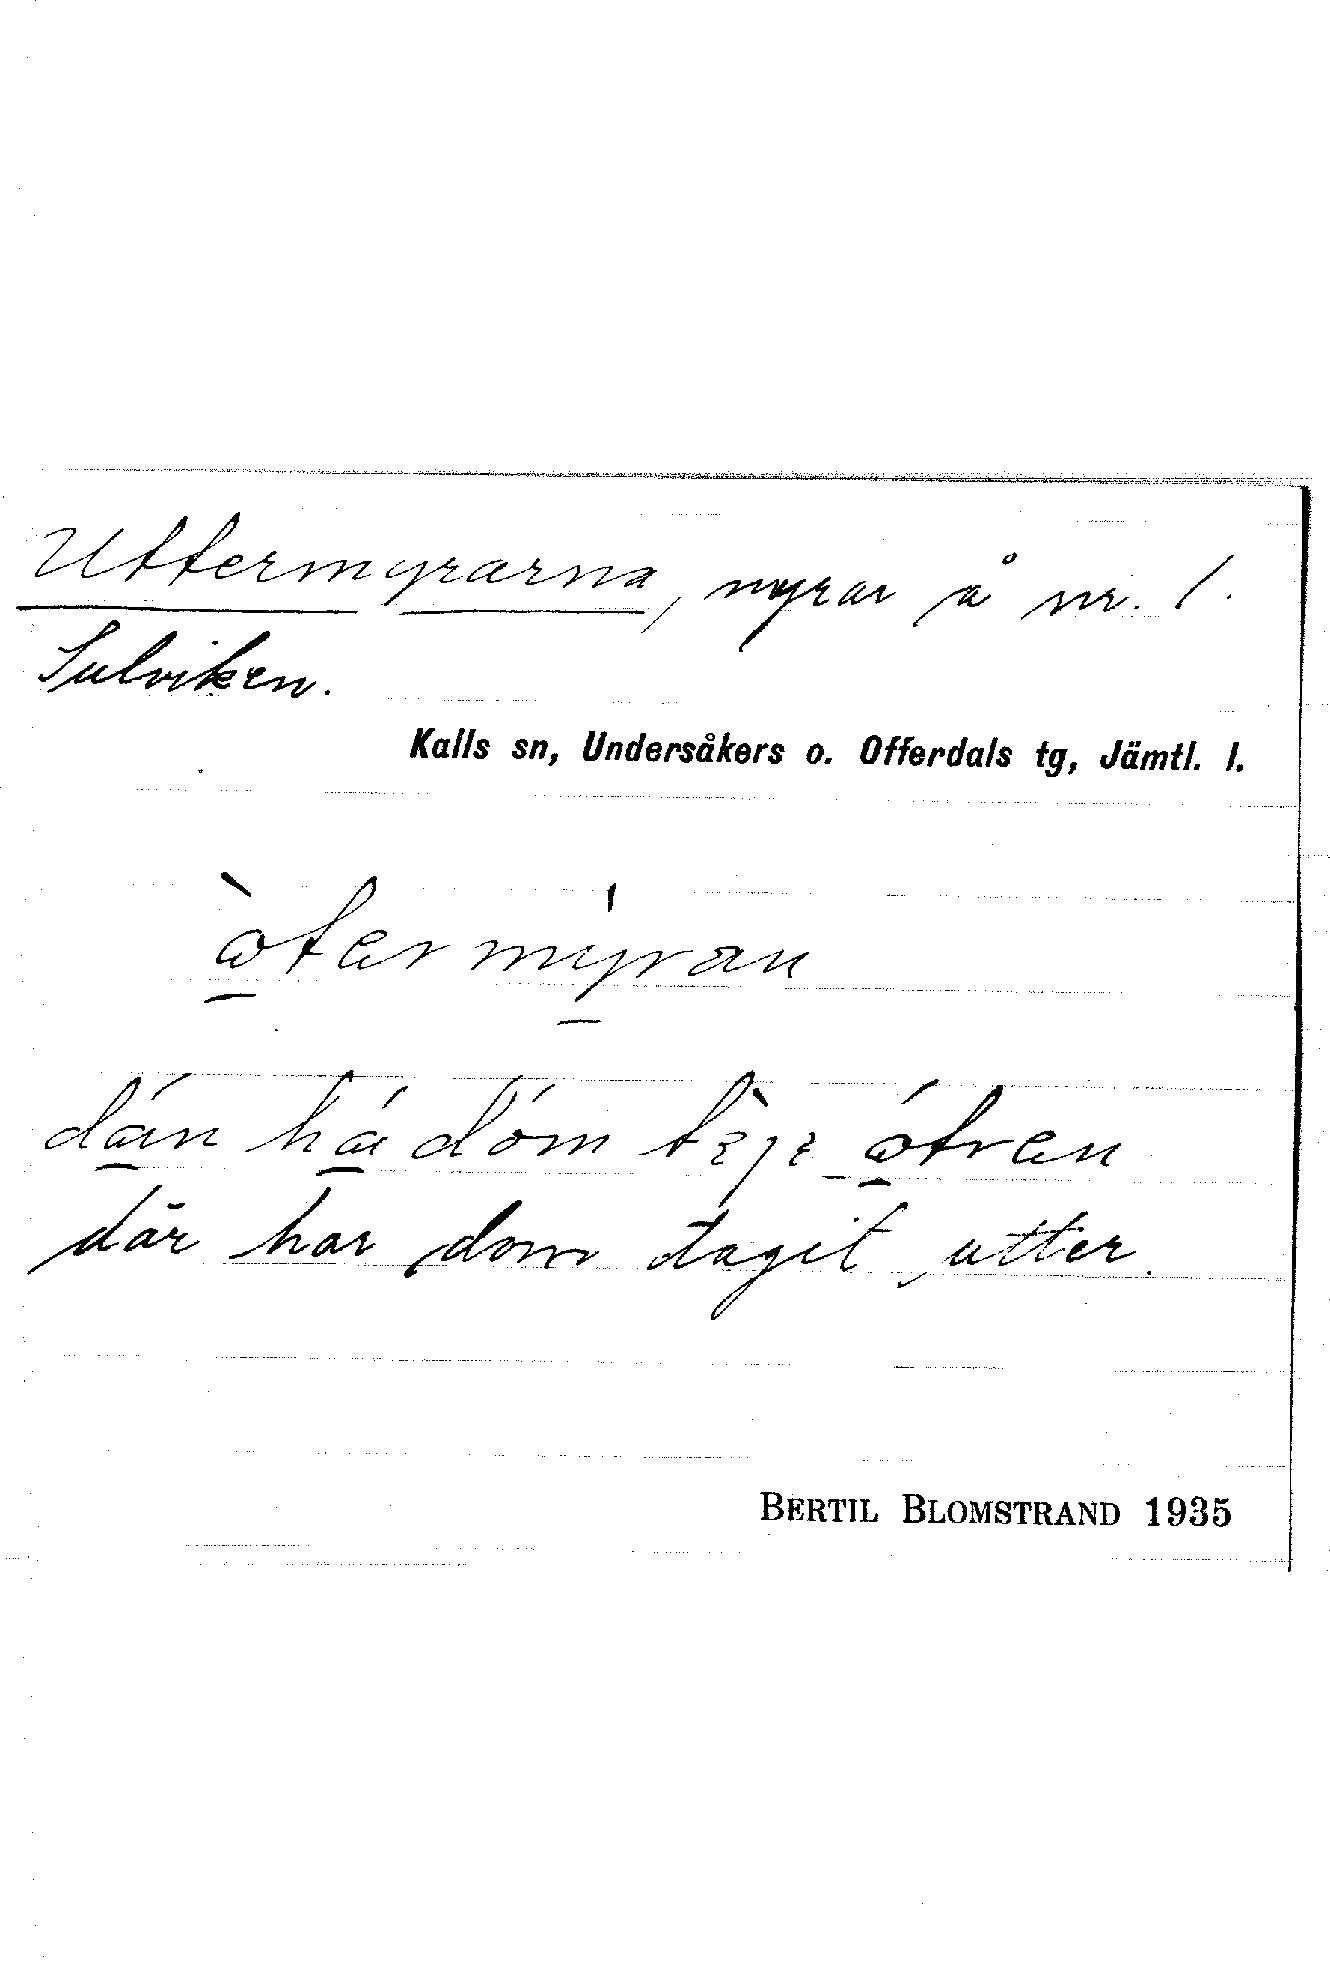 Uttermyrarna, myrar å nr. 1.
Sulviken.
Kalls sn, Undersåkers o. Offerdals tg, Jämtl. l.
òtermy̍ran
dán há dóm tɛ̀jɛ ótren
där har dom tagit utter.
BERTIL BLOMSTRAND 1935